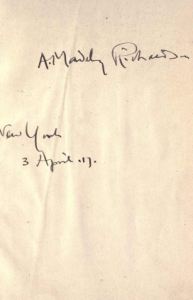 A. Madeley Richardson
New York
3 April. 17.